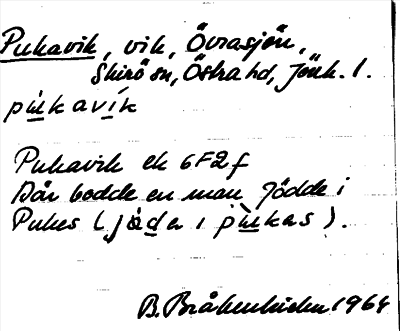 Pukavik, vik, Övrasjön,
Skirö sn, Östra hd, Jönk. l.
pukavik
Pukavik ek 6F2f
Där bodde en man Jödde i
Pukes (jöde i pukas).
B. Bråkenhielm 1964